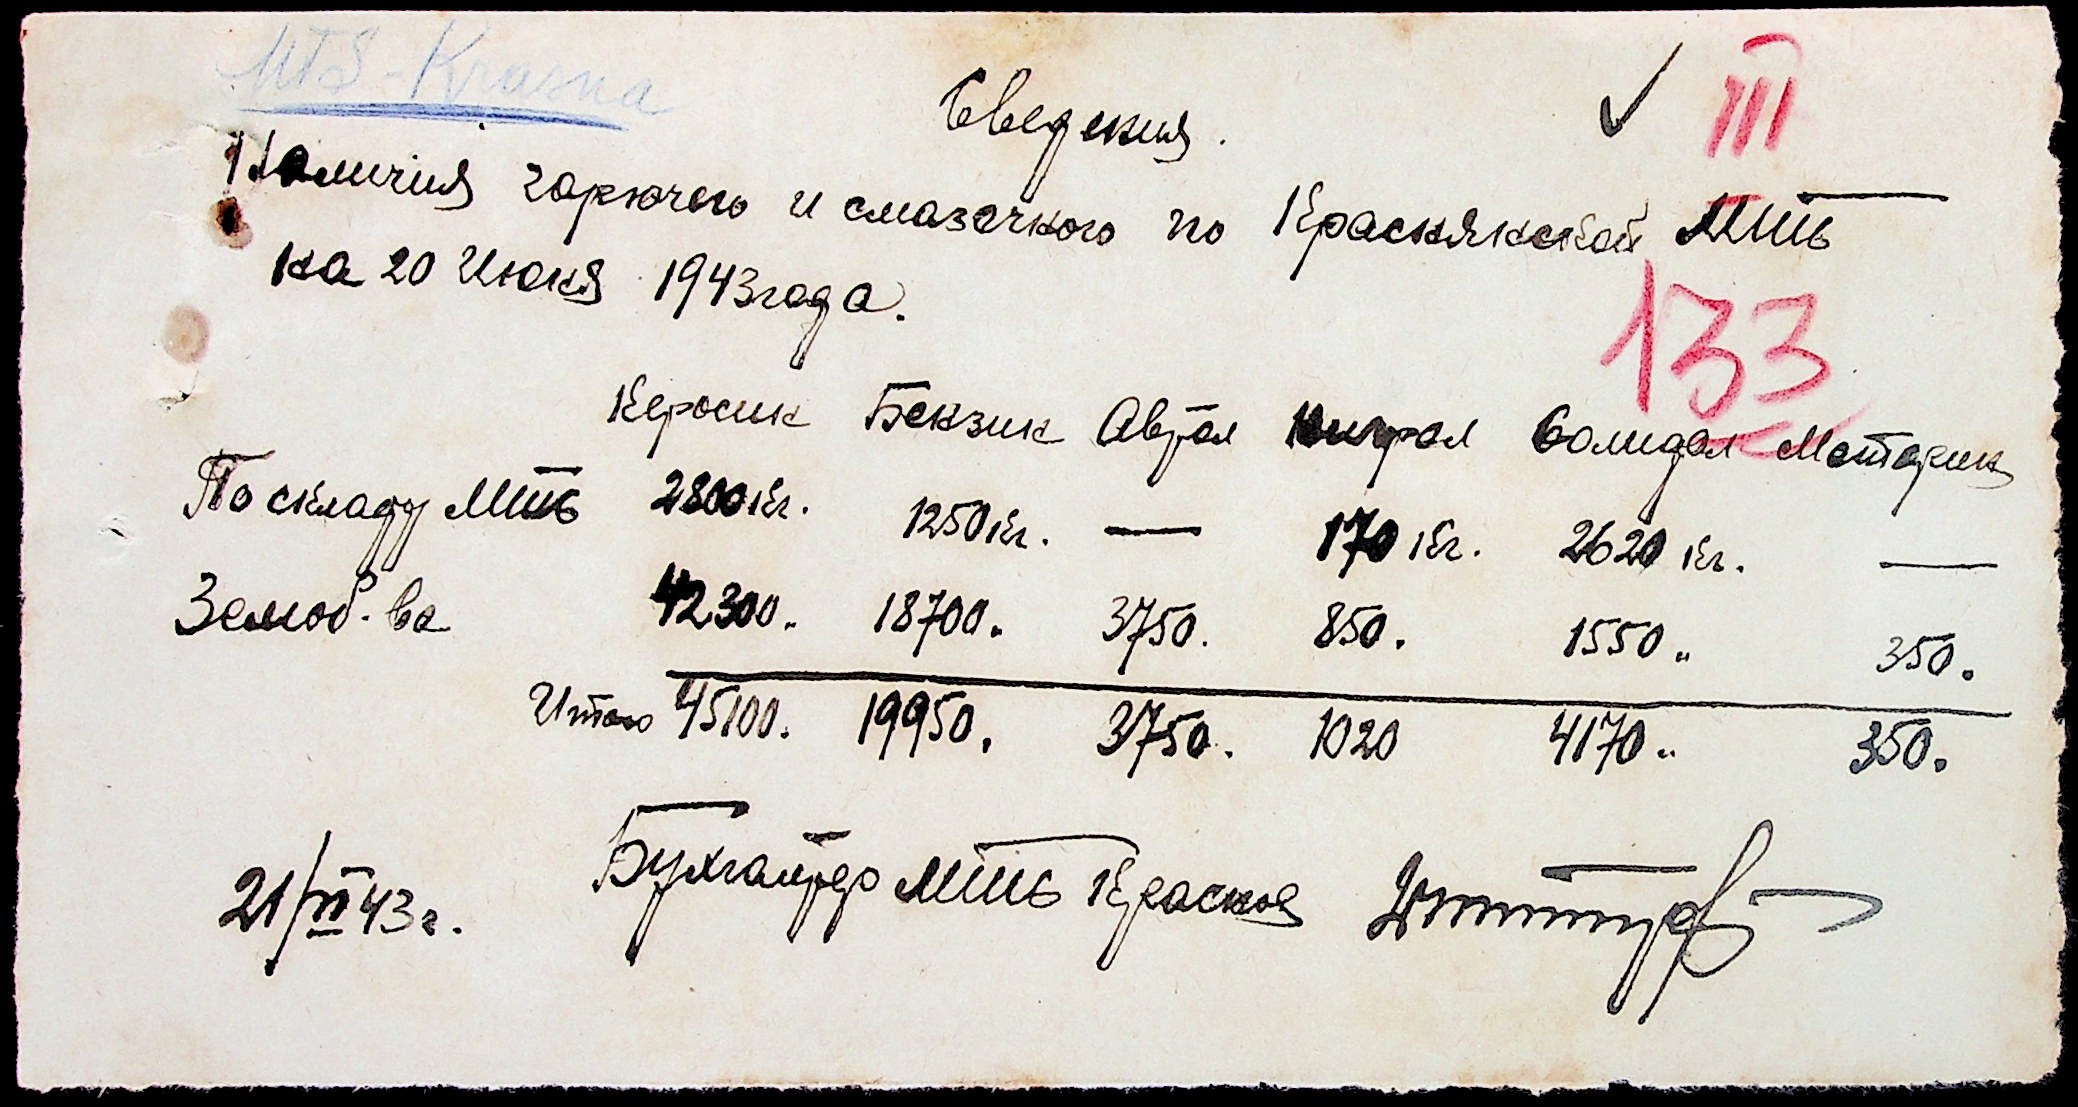 MTS-Krasna
III
Сведения.
Наличия горючего и смазочного по Краснянской МТС
на 20 Июня 1943 года.
133
Керосин Бензин Автол Нигрол Солидол Моторин
По складу МТС 2800 кг. 1250 кг. — 170 кг. 2620 кг. —
Земоб-ва 42300. 18700. 3750. 850. 1550. 350.
Итого 45100. 19950. 3750. 1020 4170. 350.
21/VI 43 г. Бухгалтер МТС Красное